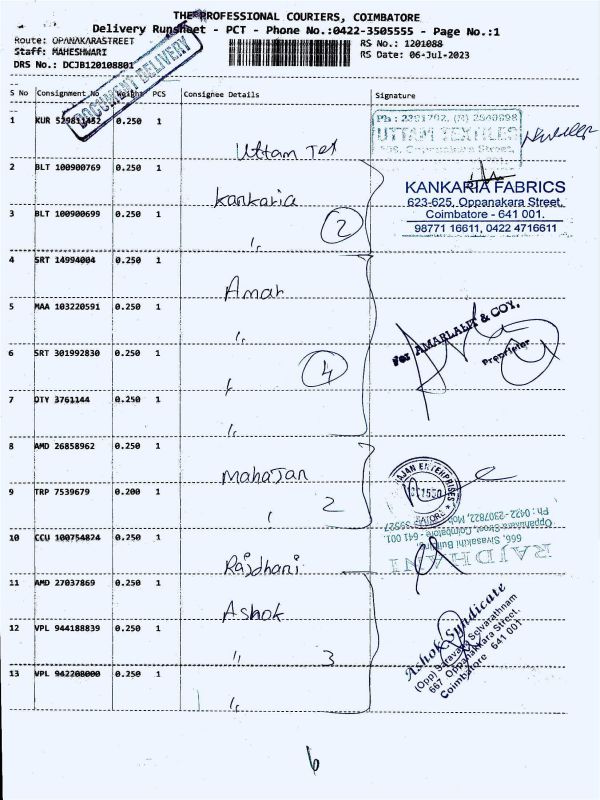 THE PROFESSIONAL COURIERS, COIMBATORE
Delivery Runsheet - PCT - Phone No.:0422-3505555 - Page No.:1
Route: OPANAKARASTREET
RS No.: 1201088
Staff: MAHESHWARI
RS Date: 06-Jul-2023
DRS No.: DCJB120108801
DOCUMENT DELIVERY
S No Consignment No Weight PCS Consignee Details Signature
1 KUR 529811452 0.250 1
Uttam Tex
UTTAM TEXTILES
2 BLT 100900769 0.250 1
Kankaria
KANKARIA FABRICS
623-625, Oppanakara Street,
Coimbatore - 641 001.
98771 16611, 0422 4716611
3 BLT 100900699 0.250 1
"
2
4 SRT 14994004 0.250 1
Amar
5 MAA 103220591 0.250 1
"
For AMARLALIT & COY.
Proprietor
6 SRT 301992830 0.250 1
"
4
7 OTY 3761144 0.250 1
"
8 AMD 26858962 0.250 1
Mahajan
9 TRP 7539679 0.200 1
" 2
10 CCU 100754824 0.250 1
Rajdhani
RAJDHANI
666, Sivasakthi Building,
Oppanakara Street, Coimbatore - 641 001
11 AMD 27037869 0.250 1
Ashok
Ashok Syndicate
(Opp) Saravana Selvarathnam
667 Oppanakkara Street,
Coimbatore 641 001
12 VPL 944188839 0.250 1
" 3
13 VPL 942208000 0.250 1
"
6